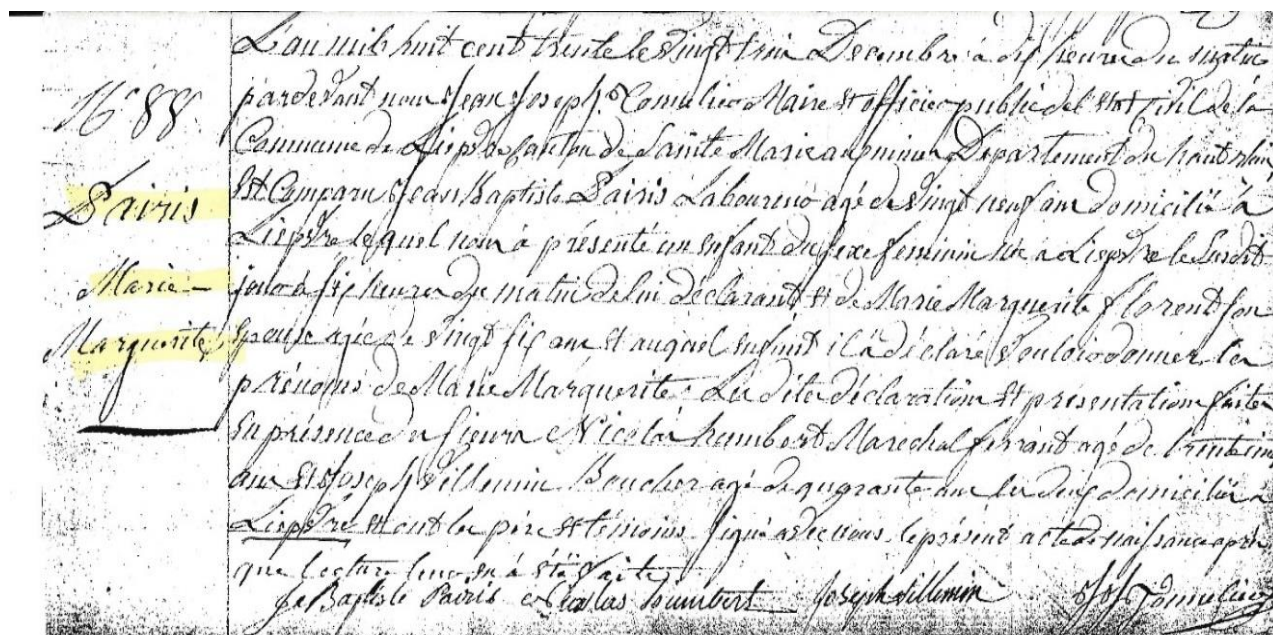 N° 88
Pairis
Marie-
Marguerite
L'an mil huit cent trente le vingt trois Decembre à dix heures du matin
pardevant nous Jean Joseph Maire et officier public de l'Etat Civil de la
Commune de Liepvre Canton de Sainte Marie aux mines Département du haut rhin,
Est Comparu Jean Baptiste Pairis Laboureur agé de vingt neuf ans domicilié à
Liepvre lequel nous à présenté un enfant du sexe feminin né à Liepvre le susdit
jour à six heures du matin de lui déclarant et de Marie Marguerite florent son
Epouse agée de vingt six ans et auquel enfant il à déclaré vouloir donner les
prénoms de Marie Marguerite. Les dites déclaration et présentation faites
En présence du sieurs Nicolas humbert Marechal ferrant agé de
ans et Joseph Villemin Boucher agé de quarante ans les deux domiciliés à
Liepvre et ont les père et témoins signé avec nous le présent acte de naissance après
que lecture leur en à été faite
J Baptiste Pairis Nicolas humbert Joseph Villemin